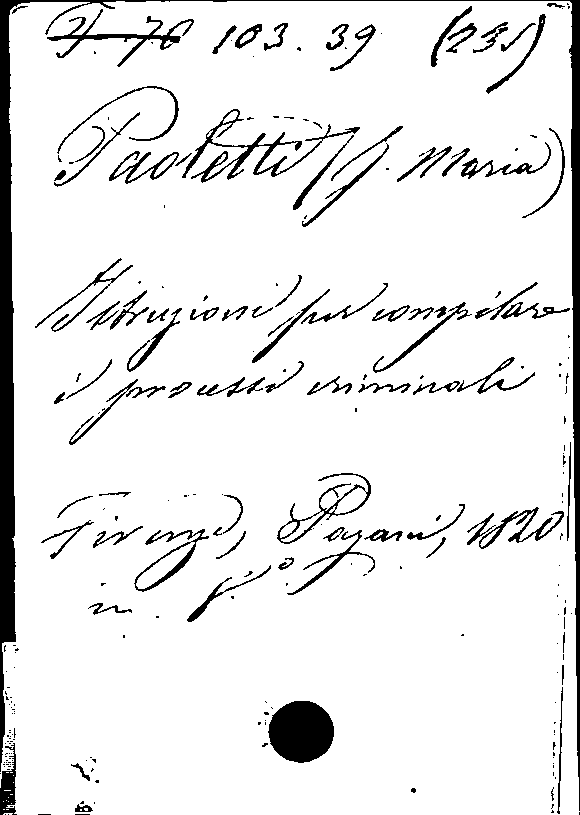 F. 76 103. 39 (231)
Paoletti (J. Maria)
Istruzioni per compilare
i processi criminali
Firenze, Pagani, 1820
in 8.°